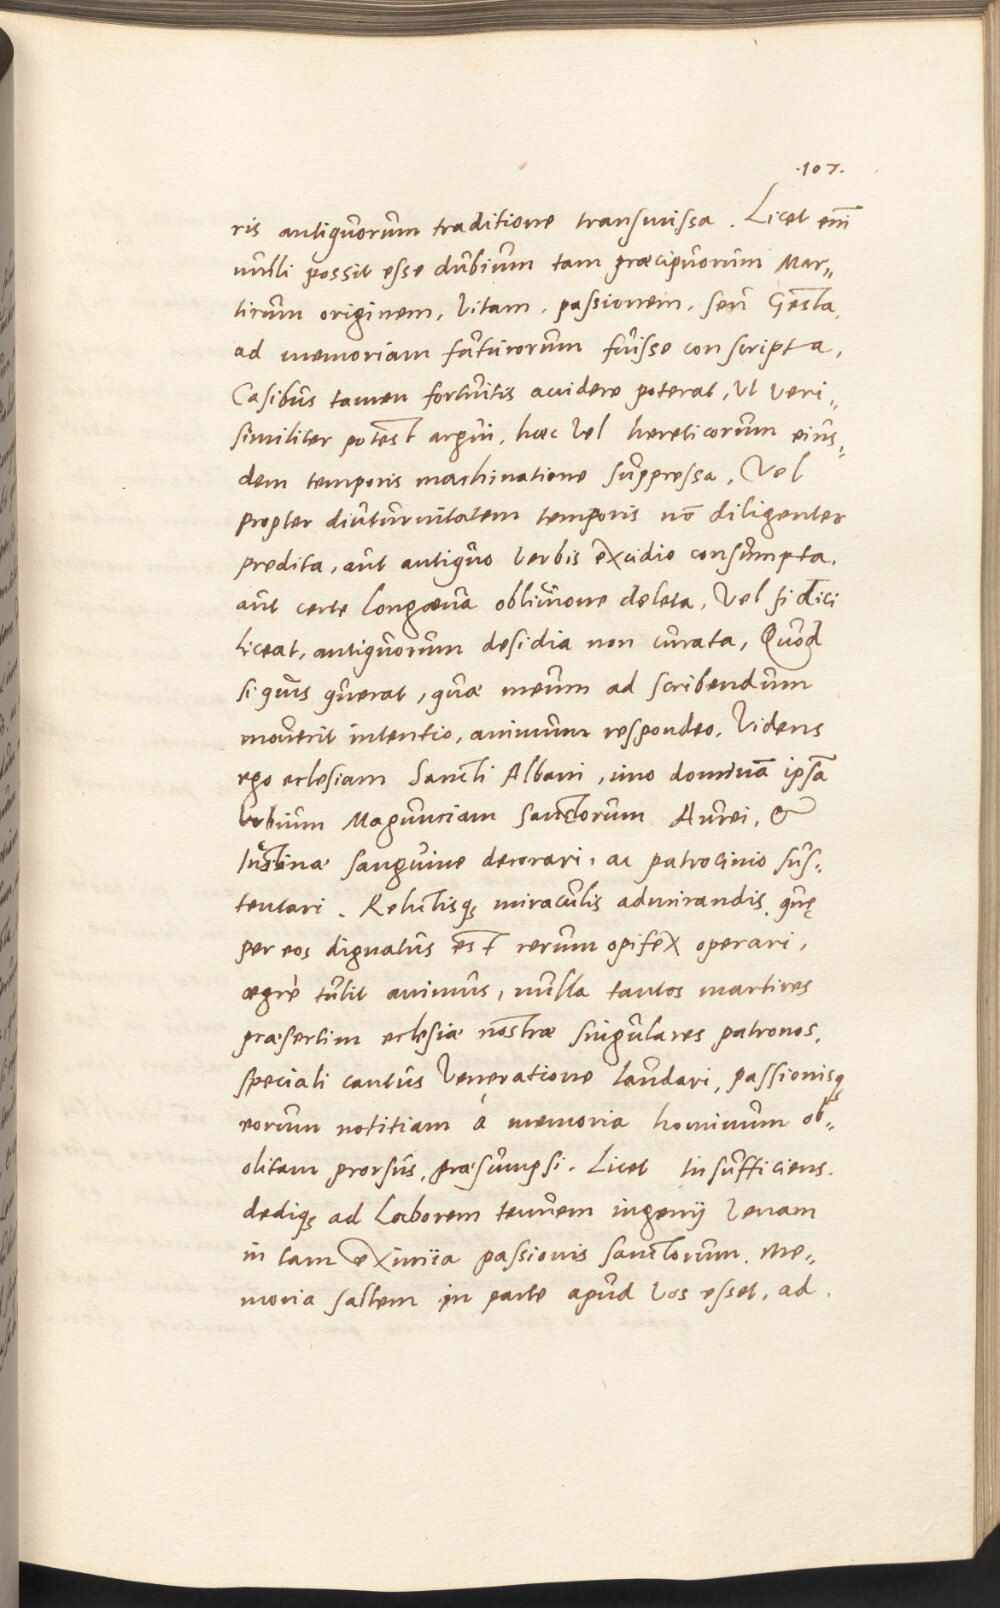 .107.
ris antiquorum traditione transmissa. Licet em̄
nulli possit esse dubium tam præcipuorum Mar,,
tirum originem, Vitam, passionem, seu Gesta,
ad memoriam futurorum fuisse conscripta,
Casibus tamen fortuitis accidere poterat, Vt veri,,
similiter potest argui, hæc Vel hereticorum eius,,
dem temporis machinatione suppressa, Vel
propter diuturnitatem temporis nō diligenter
predita, aut antiquo Verbis excidio consumpta.
aut certe longæua obliuione deleta, Vel si dici
liceat, antiquorum desidia non curata, Quod
si quis querat, quæ meum ad scribendum
mouerit intentio, animum respondeo. Videns
ego eclesiam Sancti Albani, imo dominā ipsā
Vrbium Magunciam Sanctorum Aurei, &
Iustinæ sanguine decorari, ac patrocinio sus,,
tentari. Relictisq; miraculis admirandis, quę
per eos dignatus est rerum opifex operari,
ægrè tulit animus, nulla tantos martires
præsertim eclesiæ nostræ singulares patronos,
speciali cantus Veneratione laudari, passionisq;
eorum notitiam á memoria hominum ob,,
olitam prorsus, præsumpsi. Licet Insufficiens.
dediq; ad Laborem tenuem ingenij Venam
in tam eximia passionis sanctorum, Me,,
moria saltem in parte apud Vos esset, ad.